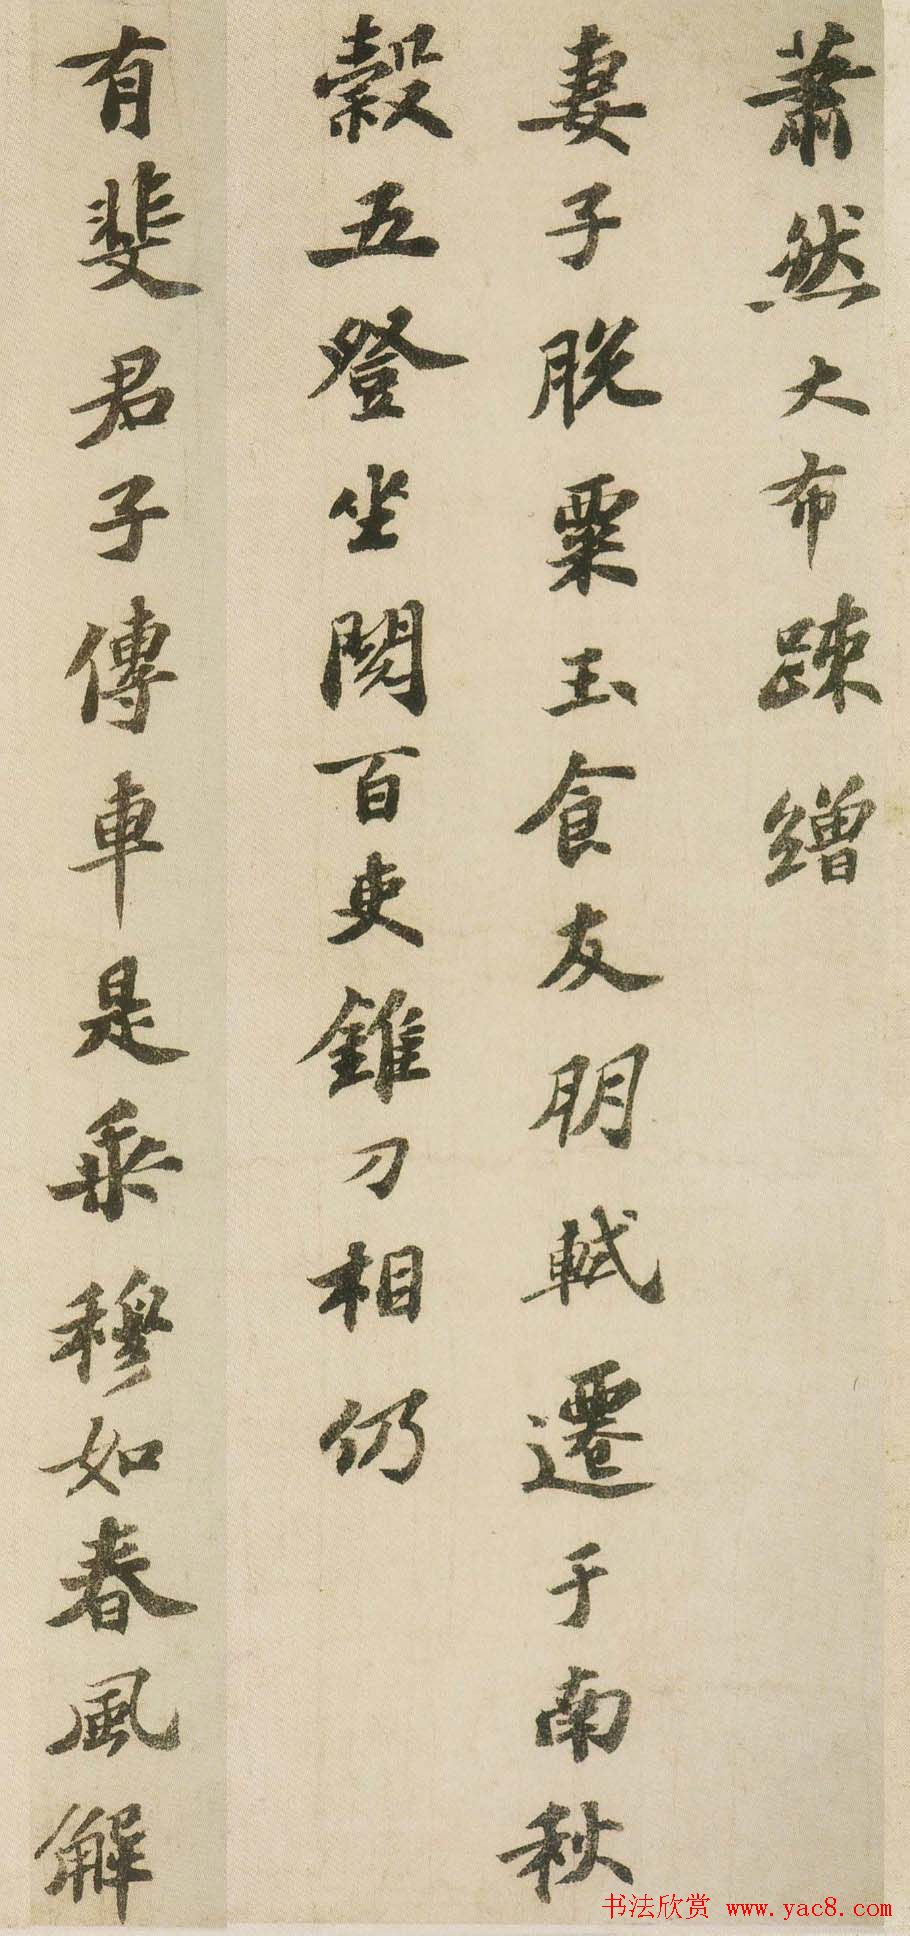 蕭然大布疎繒
妻子脱粟玉食友朋軾遷于南秋
穀五登坐閱百吏錐刀相仍
有斐君子傳車是乘穆如春風解
书法欣赏 www.yac8.com